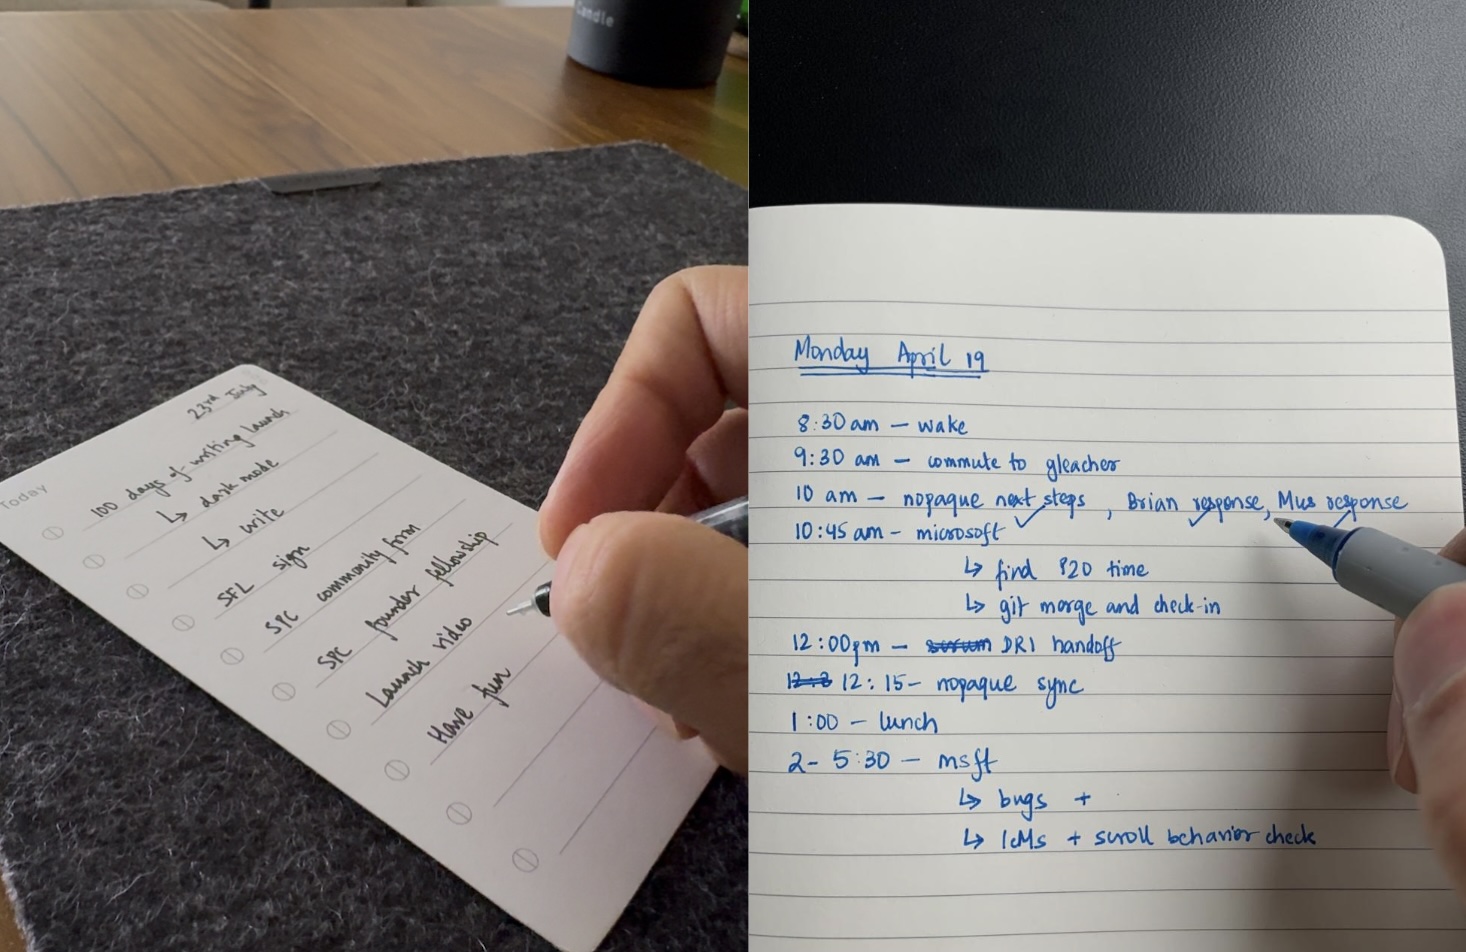 Candle
Today
23rd July
100 days of writing launch
↳ dark mode
↳ write
SFL sign
SPC community form
SPC founder fellowship
Launch video
Have fun
Monday April 19
8:30 am – wake
9:30 am – commute to gleacher
10 am – nopaque next steps, Brian response, Mus response
10:45 am – microsoft
↳ find P20 time
↳ git merge and check-in
12:00pm – DRI handoff
12:15 – nopaque sync
1:00 – lunch
2- 5:30 – msft
↳ bugs +
↳ ICMs + scroll behavior check